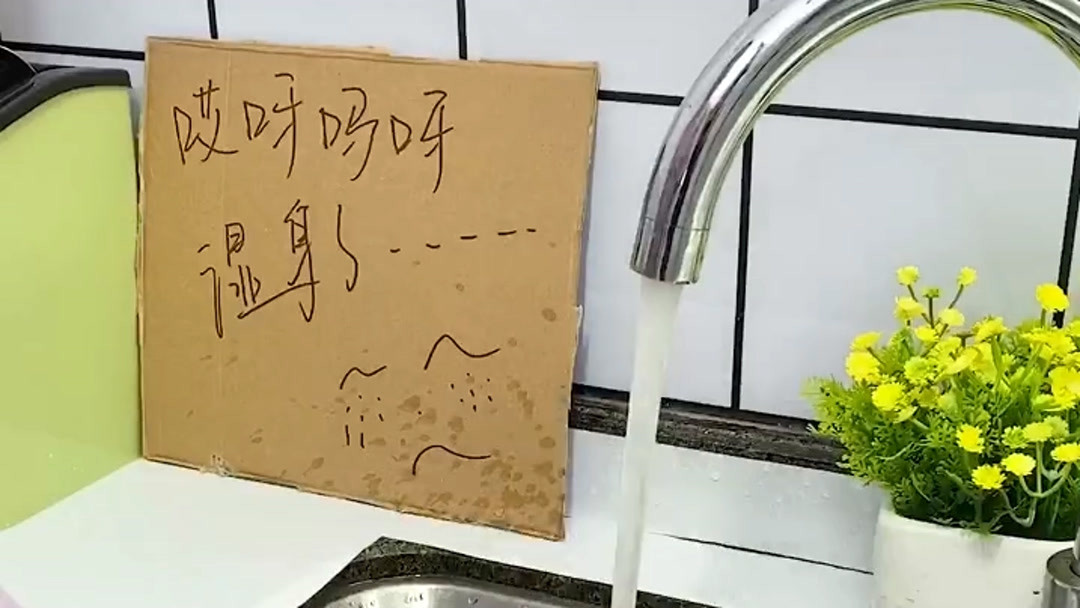 哎呀妈呀
湿身了-----